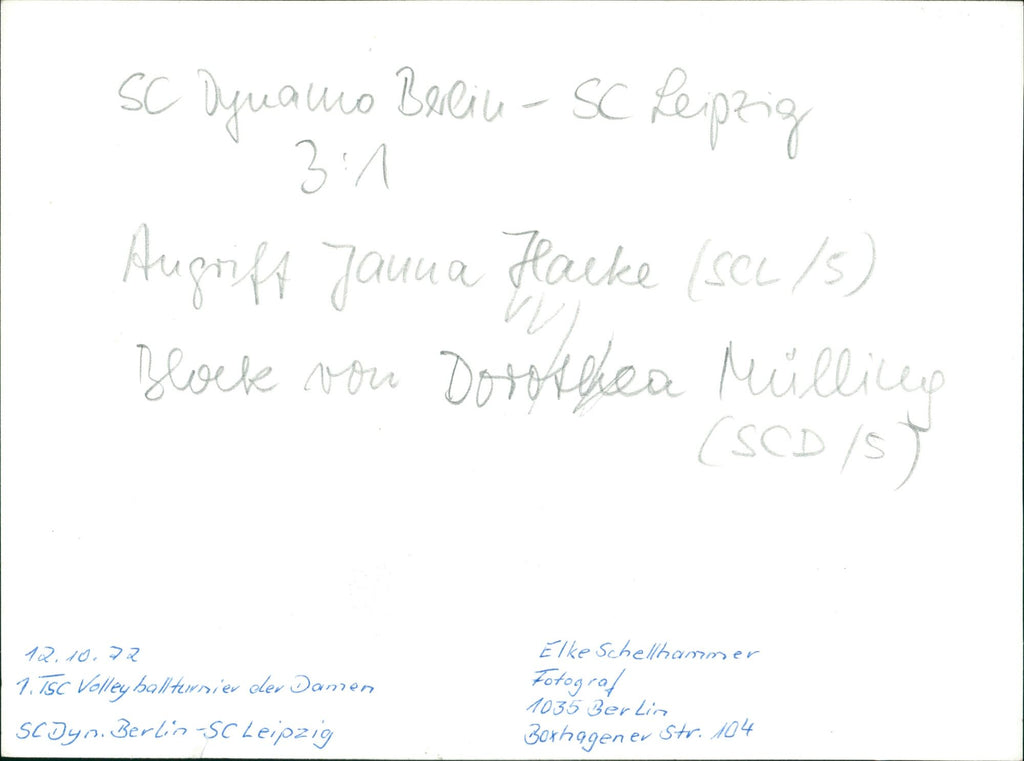 SC Dynamo Berlin - SC Leipzig
3:1
Angriff Janna Hacke (SCL/5)
Block von Dorothea Mülling
(SCD/5)
12.10.72
1. TSC Volleyballturnier der Damen
SC Dyn. Berlin - SC Leipzig
Elke Schellhammer
Fotograf
1035 Berlin
Boxhagener Str. 104